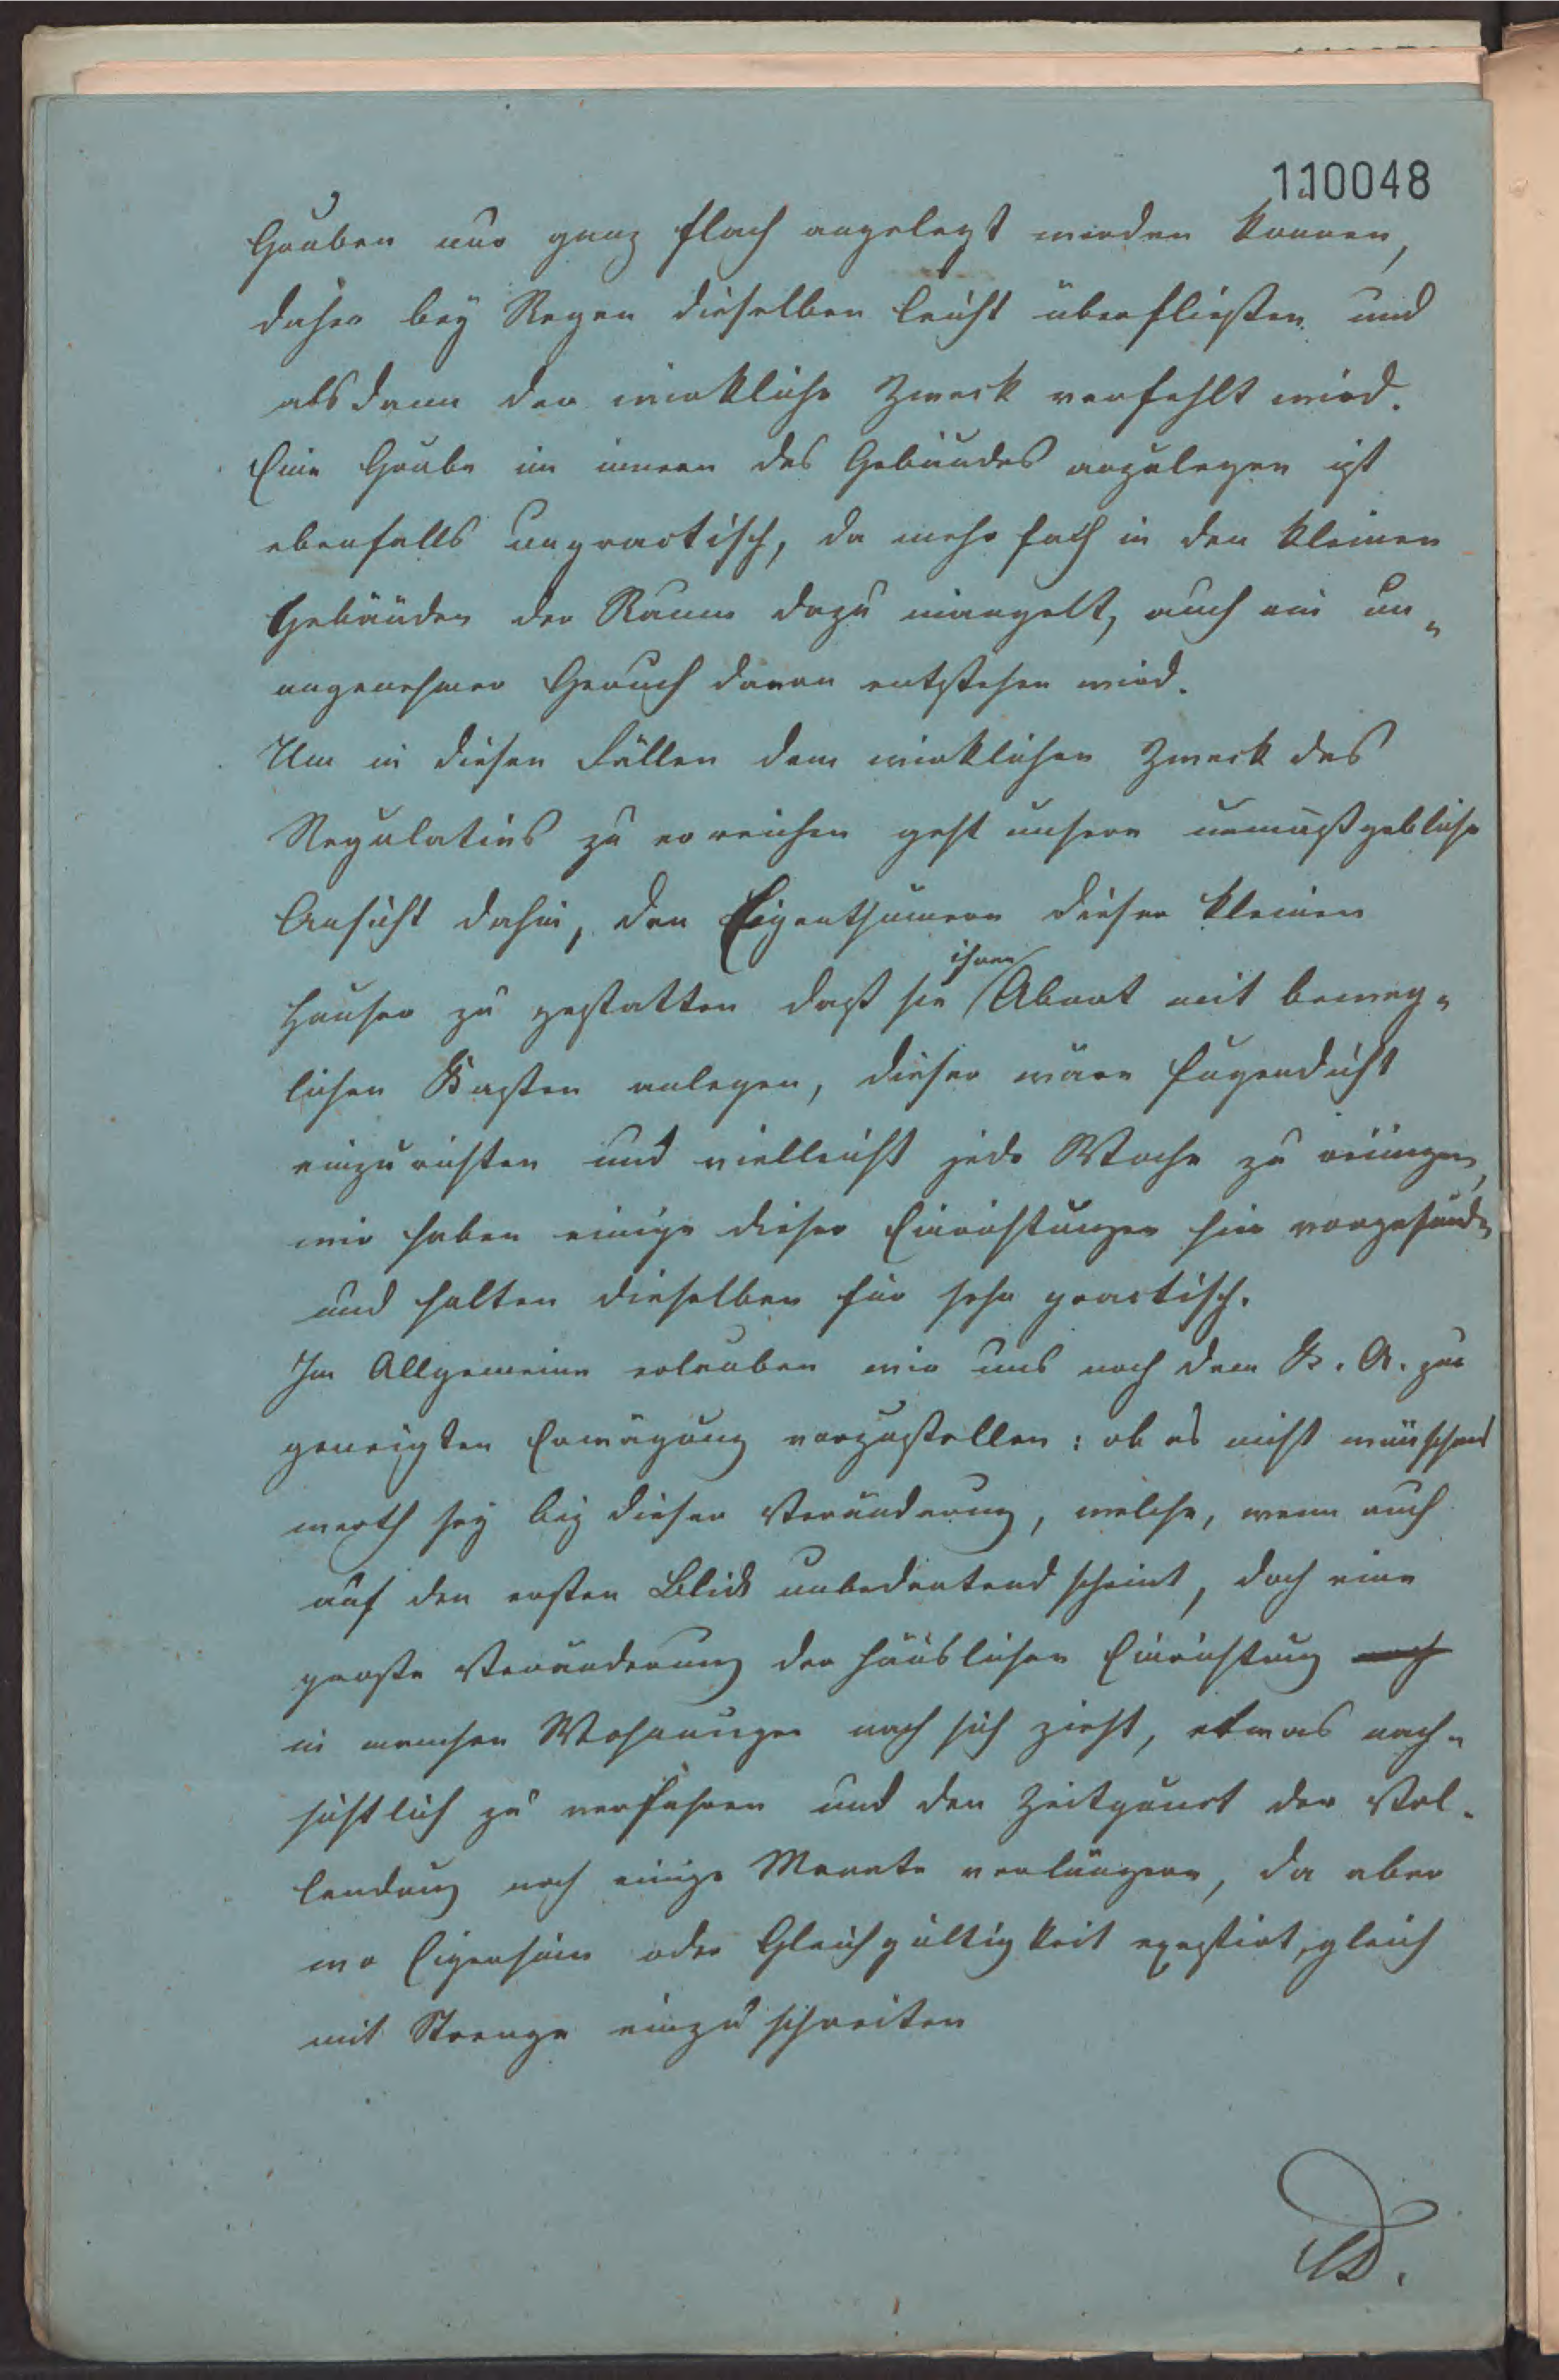 110048
Gruben nur ganz flach angelegt werden konnen,
daher bey Regen dieselben leicht überfließen und
alsdann der wirkliche Zweck verfehlt wird.
Eine Grube im innern des Gebäudes anzulegen ist
ebenfalls unpractisch, da mehrfach in den kleinen
Gebäuden der Raum dazu mangelt, auch ein un„
angenehmer Geruch daran entstehen wird.
Um in diesen Fällen dem wirklichen Zweck des
Regulativs zu erreichen geht unsere unmaßgebliche
Ansicht dahin, den Eigenthümern dieser kleinen
ihren
Häuser zu gestatten daß sie Abort mit beweg„
lichen Kasten anlegen, dieser wäre fugendicht
einzurichten und vielleicht jede Woche zu reinigen,
wir haben einige dieser Einrichtungen hier vorgefunden
und halten dieselben für sehr practisch.
Im Allgemeinen erlauben wir uns noch dem K. A. zur
geneigten Erwägung vorzustellen: ob es nicht wünschens
werth sey bey dieser Veränderung, welche, wenn auch
auf den ersten Blick unbedeutend scheint, doch eine
große Veränderung der häuslichen Einrichtung noch
in manchen Wohnungen nach sich zieht, etwas nach„
sichtlich zu verfahren und den Zeitpunct der Vol„
lendung noch einige Monate verlängern, da aber
wo Eigensinn oder Gleichgültigkeit exestirt, gleich
mit Strenge einzuschreiten